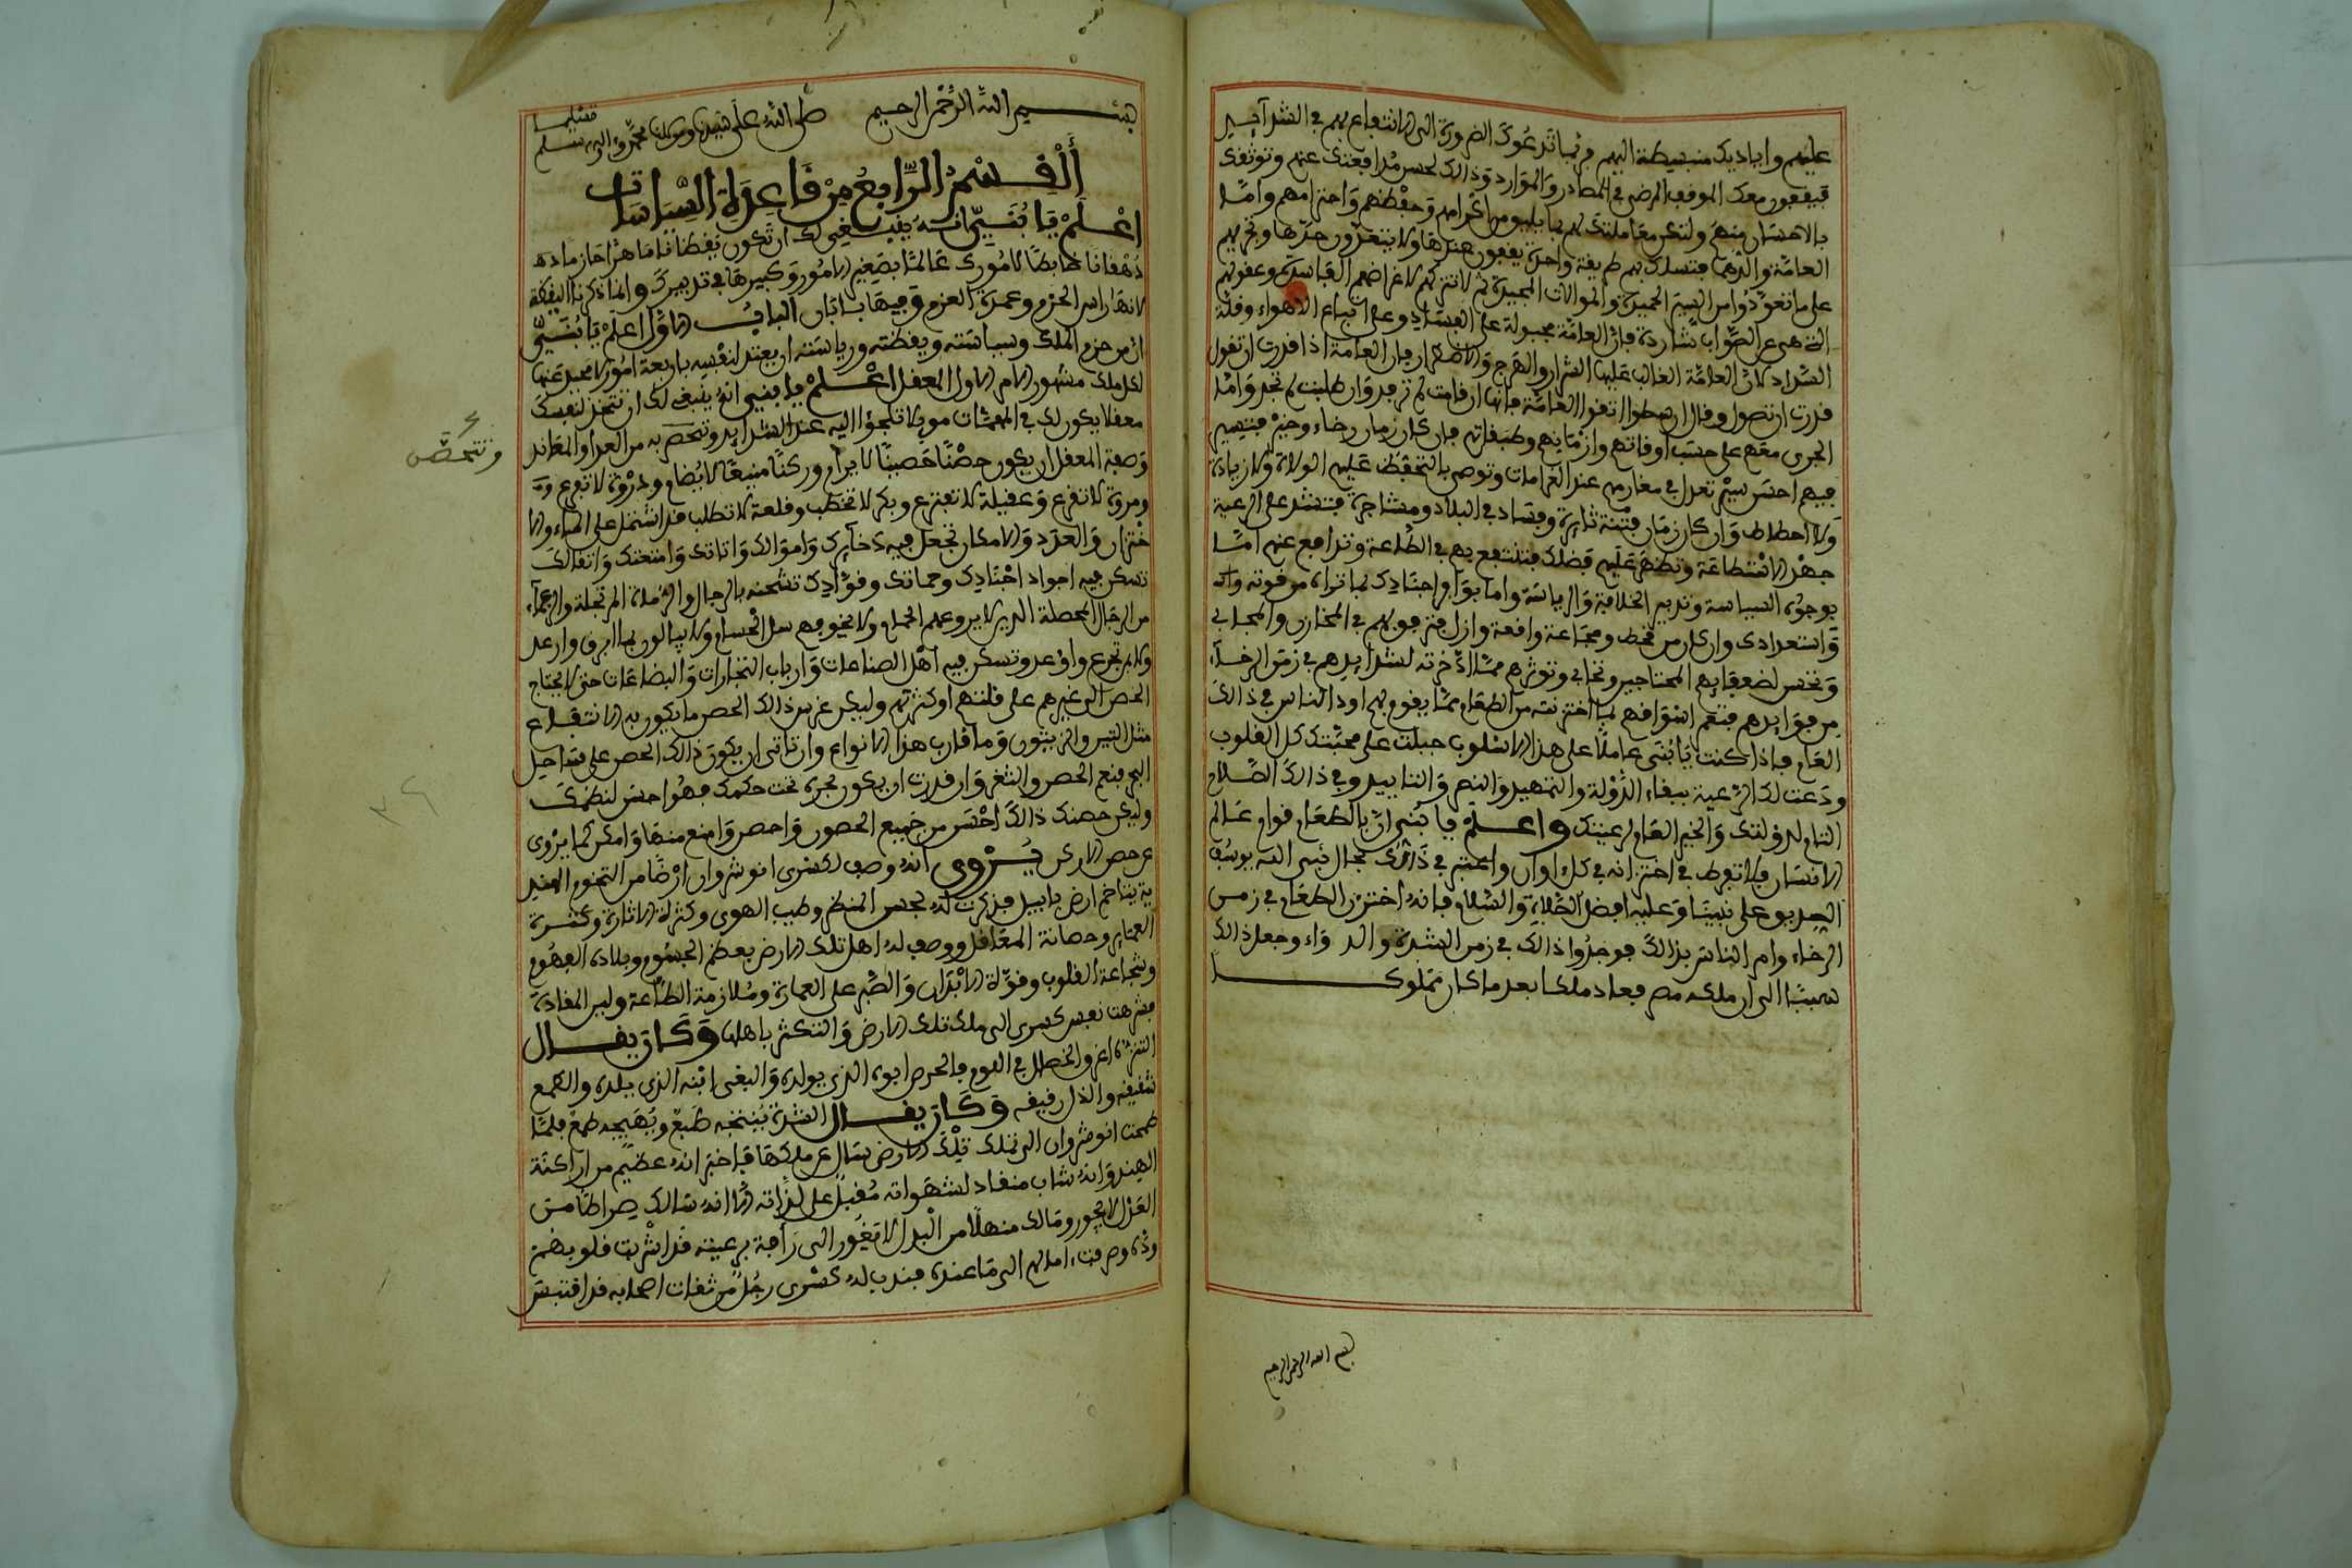 عليهم واياديك منبسطة اليهم فربما تدعوك الضرورة الى الانتفاع بهم في الشدائد
فيقفون معك الموقف المرضي في المصادر والموارد وذالك لحسن مدافعتك عنهم وتوثقك
بالاحسان منهم ولتكن معاملتك لهم بما يليق من اكرامهم وحفظهم واحترامهم واما
العامة والدهما فتسلك بهم طريقة واحدة يقفون عندها ولا يتعدون حدها وتجريهم
على ما تعودوا من السير الحميدة والموالات المجيدة ثم لا تتركهم لاغراضهم الفاسدة وعقولهم
التي هي عن الصواب شاردة فان العامة مجبولة على الفساد وعلى اتباع الاهواء وقلة
السداد لان العامة الغالب عليها الشرار والهرج والاضرار فان العامة اذا قدرت ان تقول
قدرت ان تصول وقال ارسطوا اتقوا العامة فانها ان قامت لم ترقد وان طلبت لم تجد واما
الجرى معهم على حسب اوقاتهم وازمانهم وطبقاتهم فان كان زمان رخاء وخير فتسير
فيهم احسن سير تعدل في مغارمهم عند الغرامات وتوصي بالتحفظ عليهم الولاة ولا زيادة
ولا احطاط وان كان زمان فتنة ثايرة وفساد في البلاد ومشاجرة فتشد على الرعية
جهد الاستطاعة وتظهر عليهم فضلك فتنتفع بهم في الطاعة وتدافع عنهم اما
بوجوه السياسة وتدبير الخلافة والرياسة واما بوافر اجنادك لما تراه من قوته
واستعدادك وان كان زمن قحط ومجاعة واقعة وازل فترفق بهم في المخازن والمجابي
وتحسن لضعفايهم المحتاجين وتحابي وتوثرهم مما ادخرته لشدايدهم في زمن الرخاء
من فوايدهم فتعم اسواقهم بما اختزنته من الطعام مما يقوم بهم اود الناس في ذالك
العام فاذا كنت يا بني عاملا على هذا الاسلوب جبلت على محبتك كل القلوب
ودعت لك الرعية ببقاء الدولة والتمهيد والنصر والتاييد وفي ذالك الصلاح
التام لدولتك والخير العام لرعيتك واعلم يا بني ان بالطعام قوام عالم
الانسان فلا تفرط في اختزانه في كل اوان واعتبر في ذالك بحال نبي الله يوسف
الصديق على نبينا وعليه افضل الصلاة والسلام فانه اختزن الطعام في زمن
الرخاء وامر الناس بذالك فوجدوا ذالك في زمن الشدة والد واء وجعل ذالك
سببا الى ان ملك مصر فعاد ملكا بعد ما كان مملوكا
بسم الله الرحمن الرحيم
بسم الله الرحمن الرحيم صلى الله على سيدنا ومولانا محمد واله وسلم تسليما
القسم الرابع من قاعدة السياسات
اعلم يا بني انه ينبغي لك ان تكون يقظانا ماهرا حازما ده
دهقانا ضابطا لامورك عالما بصغير الامور وكبيرها في تدبيرك وانما ذكرنا اليقظة
لانها راس الحزم وعمدة العزم وفيها بابان الباب الاول اعلم يا بني
ان من حزم الملك وسياسته ويقظته ورياسته ان يعتد لنفسه باربعة امور لا محيد عنها
لكل ملك مشهور الامر الاول المعقل اعلم يا بني انه ينبغي لك ان تتخذ لنفسك
معقلا يكون لك في المهمات موئلا تلجؤا اليه عند الشدايد وتتحصن به من العدا والمعاند
وصفة المعقل ان يكون حصنا حصينا لا يرام وركنا منيعا لا يضام وذروة لا تفرع
ومروة لا تقرع وعقيلة لا تفترع وبكر لا تخطب وقلعة لا تطلب قد اشتمل على الماء والا
ختزان والعدد والامكان تجعل فيه ذخايرك واموالك واثاثك وامتعتك واثقالك
تسكن فيه اجواد اجنادك وحماتك وقوادك تشحنه بالرجال والرماة المرتجلة والزعماء
من الرجال المحصلة الذين لا يروعهم الحمام ولا يخيفهم سل الحسام ولا يبالون بما ابرق وارعد
ولا بمن تجرع واوعد وتسكن فيه اهل الصناعات وارباب التجارات والبضاعات حتى لا يحتاج
الحصن الى غيرهم على قلتهم او كثرتهم وليكن غرس ذالك الحصن ما يكون به الانتفاع
مثل التين والزيتون وما قارب هذا الانواع وان تاتى ان يكون ذالك الحصن على ساحل
البحر فنعم الحصن والثغر وان قدرت ان يكون بحره تحت حكمك فهو احسن لنظمك
وليكن حصنك ذالك احسن من جميع الحصون واحصن وامنع منها وامكن كما يروى
عن حصن الاركن يروى انه وصف لكسرى انوشروان ارضا من التخوم الهند
ية يتاخم ارض بابيل فذكرت له بحسن المنظر وطيب الهوى وكثرة الاثارة وكثرة
العماير وحصانة المعاقل ووصف له اهل تلك الارض بعظم الجسوم وبلادة الفهوم
وشجاعة القلوب وقوة الابدان والصبر على العمارة وملازمة الطاعة ولين المقادة
فشرهت نفس كسرى الى ملك تلك الارض والتكثر باهلها وكان يقال
الشره اعز والخصال في القوم فالحرص ابوه الذي يولده والبغي ابنه الذي يلده والطمع
شقيقه والذل رفيقه وكان يقال الشره ينتجه طبع ويهيجه طمع فلما
طمحت انوشروان الى تملك تلك الارض سال عن ملكها فاخبر انه عظيم من اراكنة
الهند وانه شاب منقاد لشهواته مقبل على لذاته الا انه سالك صراطا من
العدل لا يجور ومالك منهلا من البذل لا يغور الى رافة برعيته قد اشربت قلوبهم
وده وصرفت امالهم الى ما عنده فندب له كسرى رجل من ثقات اصحابه قد اقتبس
وتتحصن